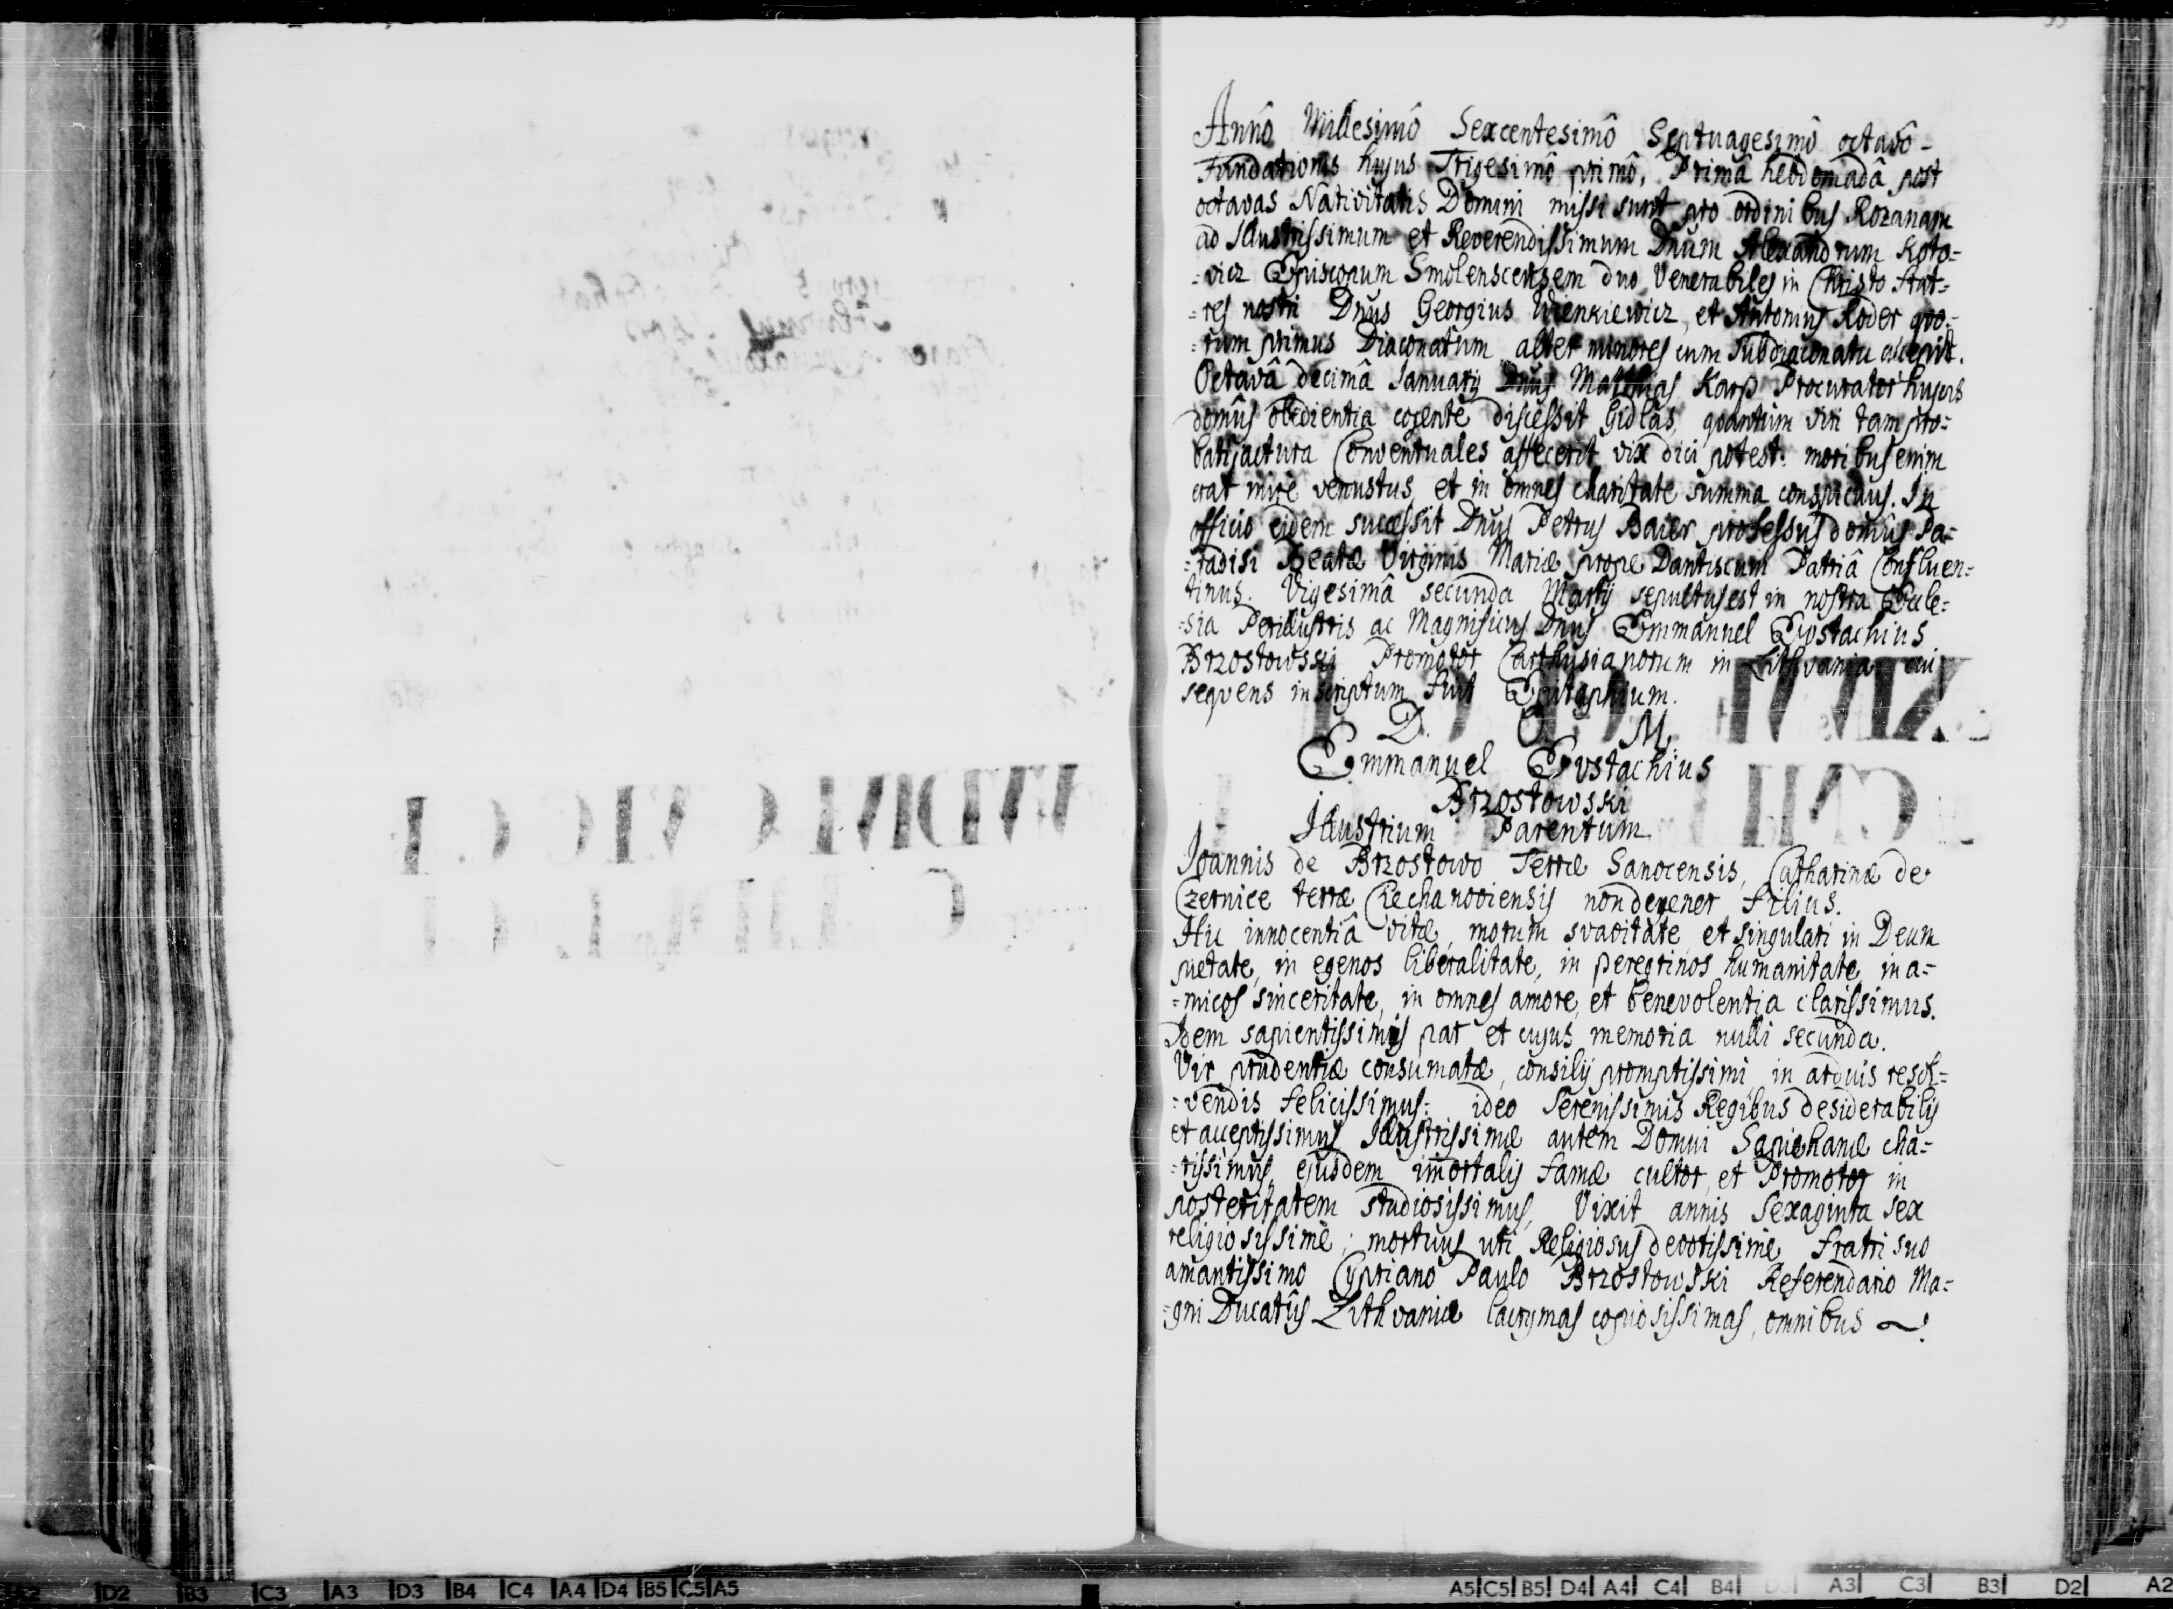 Annô Millesimô Sexcentesimô Septuagesimô octavô
Fundationis hujus Trigesimô primô, Primâ hebdomadâ post
octavas Nativitatis Domini missi sunt pro ordinibus Rozanam
ad Illustrissimum et Reverendissimum Dnum Alexandrum Koto=
=vicz Episcopum Smolenscensem duo Venerabiles in Christo frat=
=res nostri Dnus Georgius Wienkiewicz, et Antonius Roder quo=
=rum primus Diaconatum alter minores cum Subdiaconatu
Octavâ decimâ Ianuarij Dnus Matthias Karp Procurator hujus
domûs obedientia cogente discessit Gidlas, quantum viri tam pro=
bati jactura Conventuales affecerit vix dici potest: moribus enim
erat mire venustus, et in omnes charitate summa conspicuus. In
officio eidem successit Dnus Petrus Baier professus domus Pa=
=radisi Beatæ Virginis Mariæ prope Dantiscum Patriâ Confluen=
tinus. Vigesimâ secunda Martij sepultus est in nostra Eccle=
=sia Perillustris ac Magnificus Dnus Emmanuel Eustachius
Brzostowski Promotor Carthusianorum in Lithvania cui
sequens inscriptum fuit Epitaphium.
D. O. M.
Emmanuel Evstachius
Brzostowski
Illustrium Parentum
Ioannis de Brzostowo Terræ Sanocensis, Catharinæ de
Czernice terræ Ciechanoviensis non degener Filius.
Hic innocentiâ vitæ, morum svavitate, et singulari in Deum
pietate, in egenos liberalitate, in peregrinos humanitate, in a=
=micos sinceritate, in omnes amore, et benevolentia clarissimus.
Idem sapientissimis par et cujus memoria nulli secunda.
Vir prudentiæ consumatæ, consilij promptissimi, in arduis resol=
=vendis felicissimus: ideo Serenissimis Regibus desiderabilis
et acceptissimus Illustrissimæ autem Domui Sapiehanæ cha=
=rissimus, ejusdem imortalis famæ cultor, et Promotor in
posteritatem studiosissimus, Vixit annis Sexaginta sex
religiosissimè; mortuus uti Religiosus devotissimè, fratri suo
amantissimo Cypriano Paulo Brzostowski Referendario Ma=
=gni Ducatûs Lithvaniæ lacrymas copiosissimas, omnibus
A2 D2 B3 C3 A3 D3 B4 C4 A4 D4 B5 C5 A5
A5 C5 B5 D4 A4 C4 B4 D3 A3 C3 B3 D2 A2